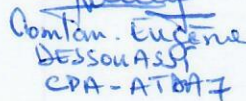 Comtan. Eugène
DESSOUASSI
CPA-ATDA7